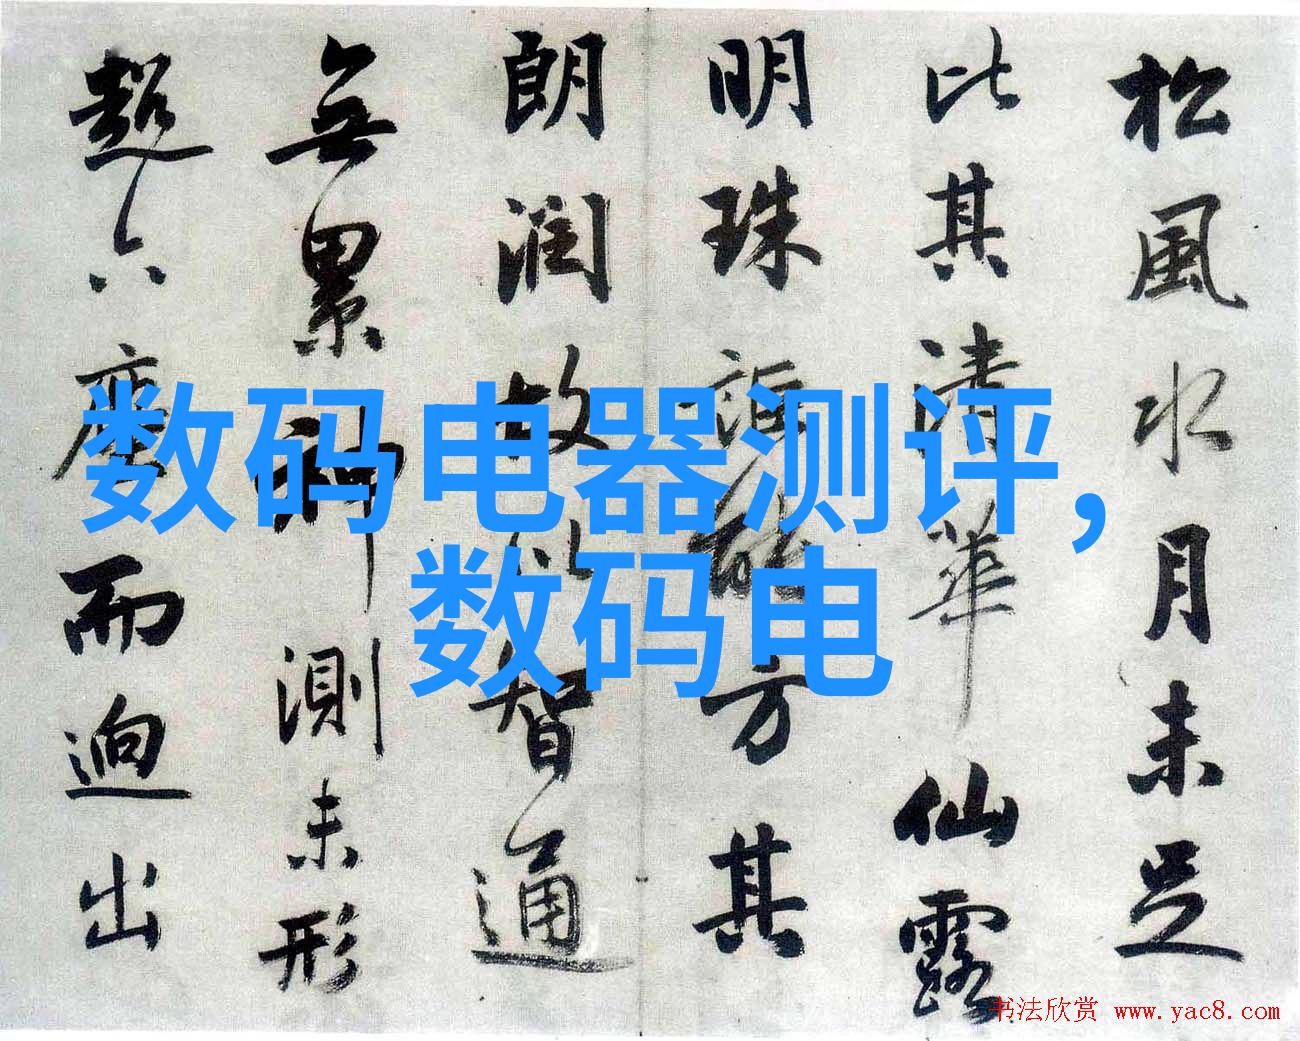 松風水月未足
比其清華仙露
明珠詎能方其
朗潤故以智通
無累神測未形
超六塵而迥出
数码电器测评，
数码电
书法欣赏 www.yac8.com